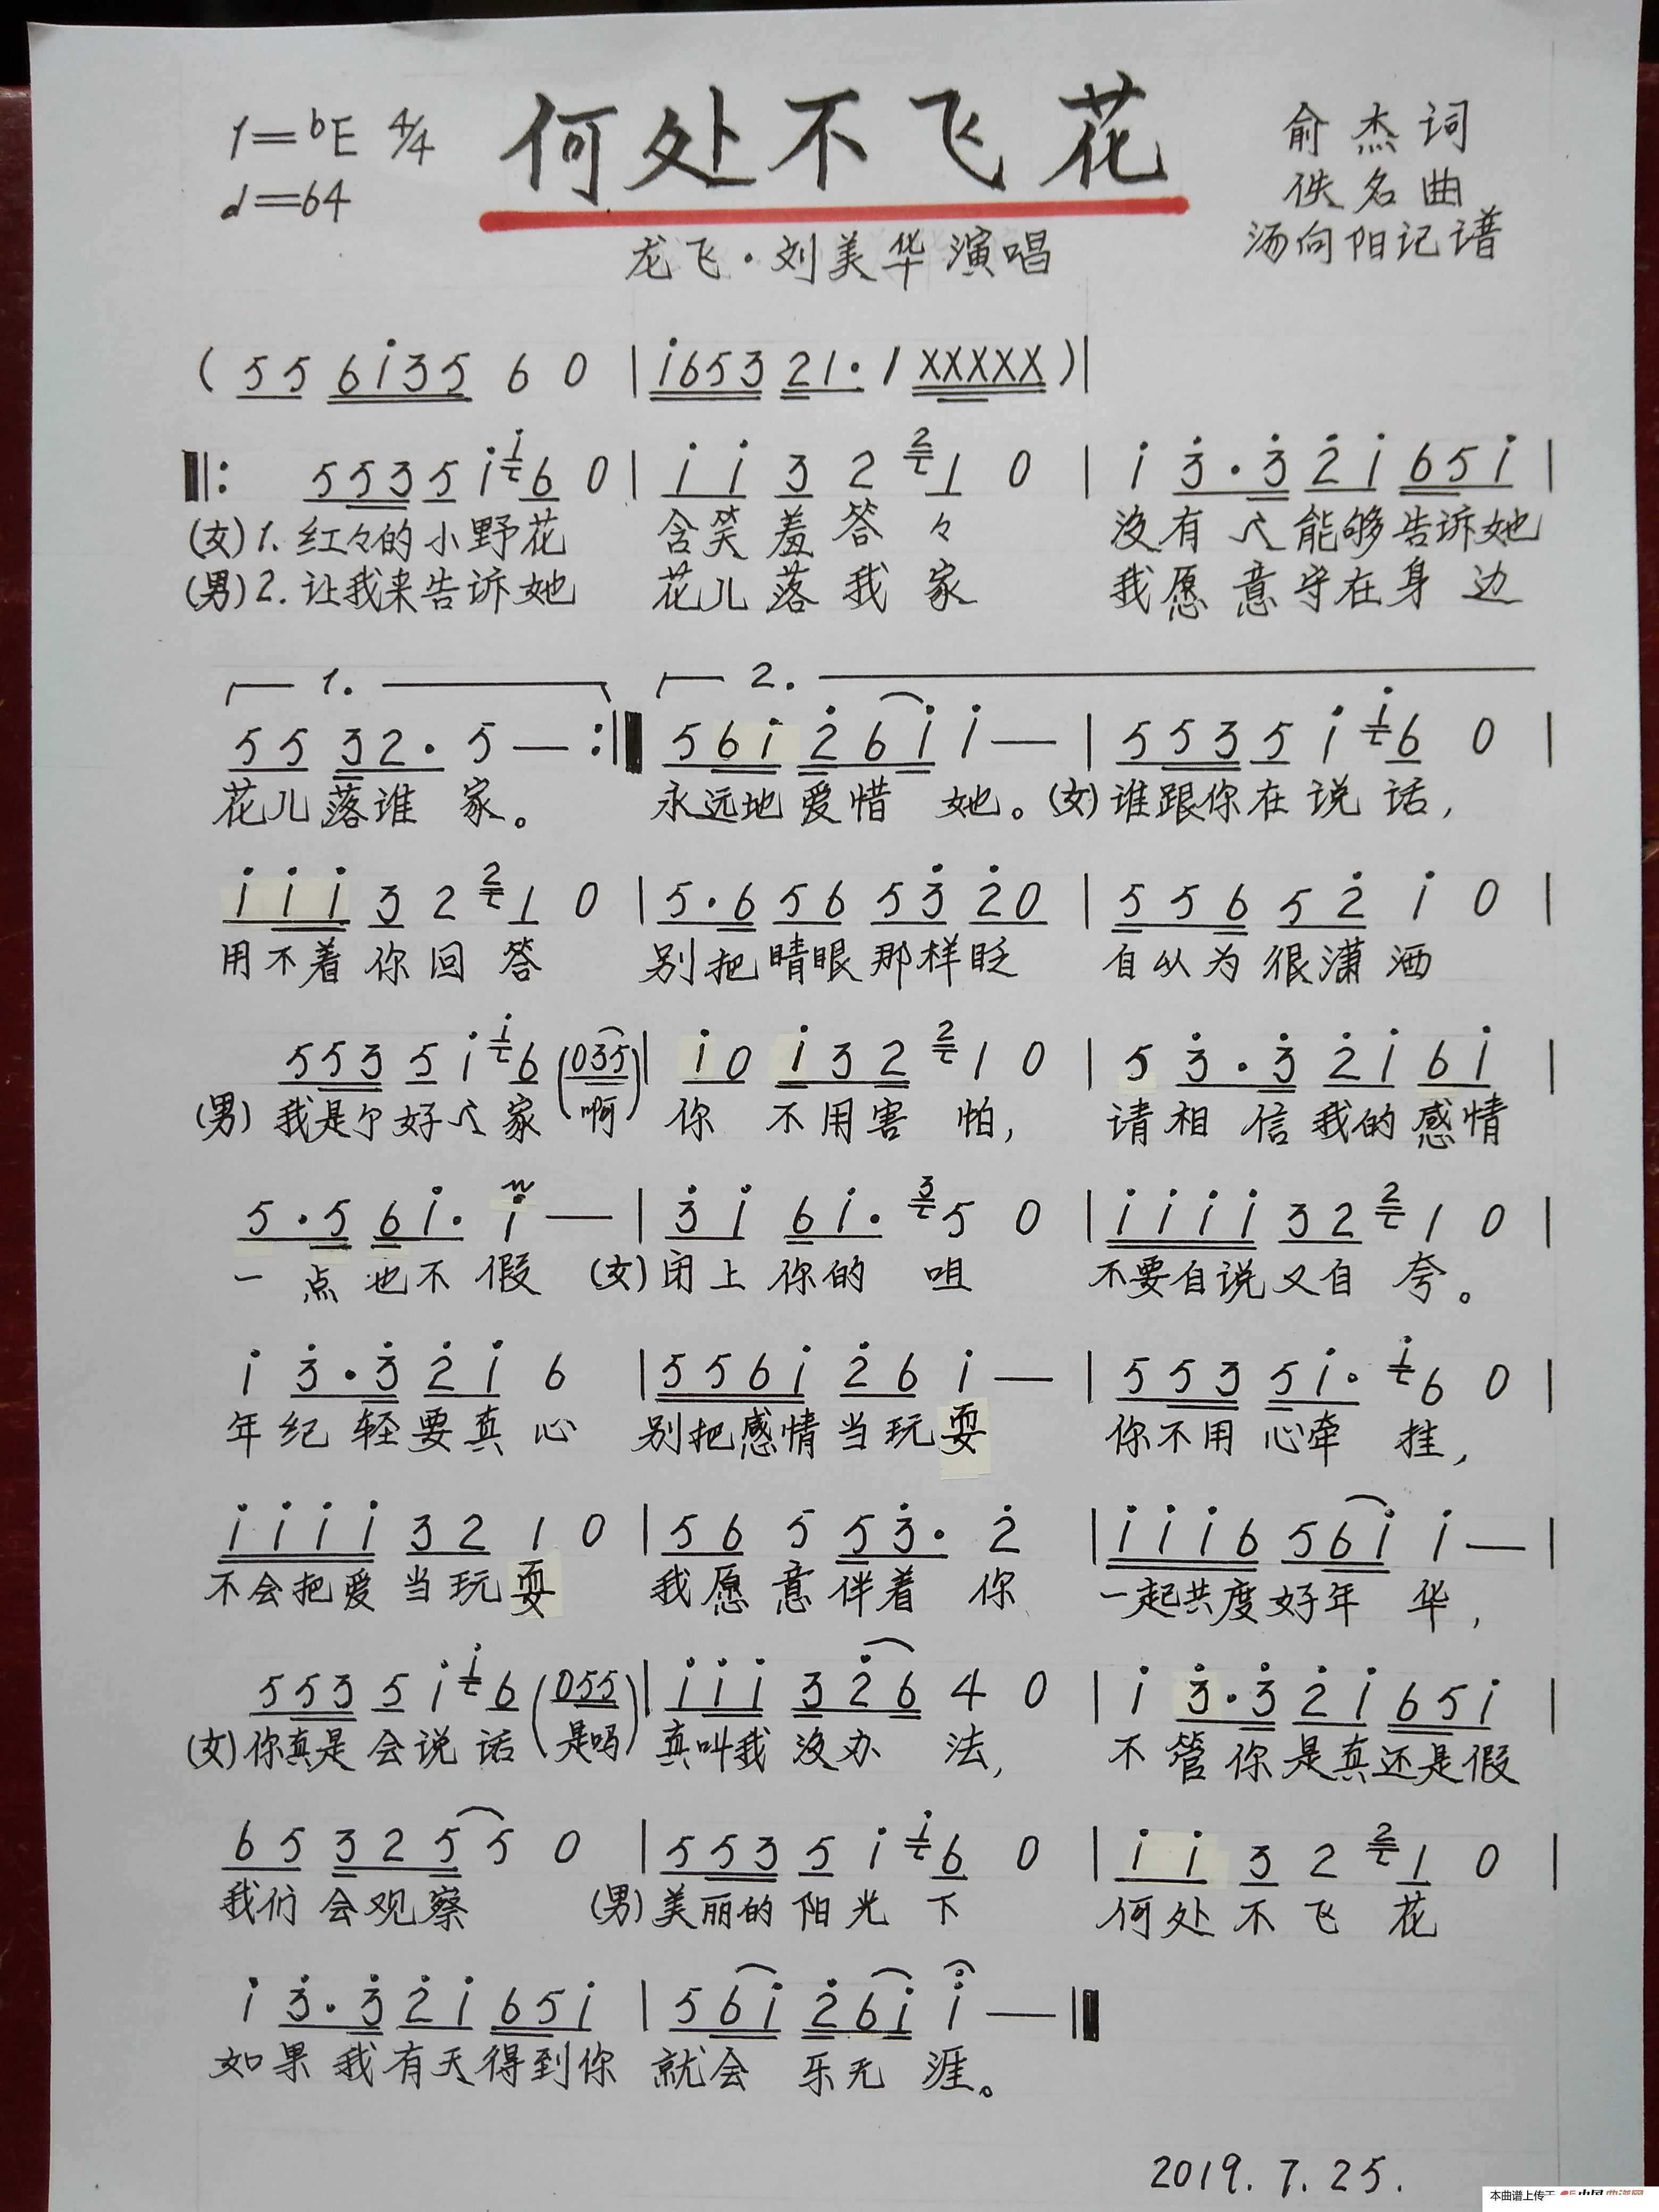 1=bE 4/4 何处不飞花 俞杰词
♩=64 佚名曲
龙飞·刘美华演唱 汤向阳记谱
( 5 5 6 i 3 5 6 0 | i 6 5 3 2 1 · 1 X X X X X ) |
‖: 5 5 3 5 i i 6 0 | i i 3 2 2 1 0 | i 3 · 3 2 i 6 5 i |
(女) 1. 红々的小野花 含笑羞答々 没有个人能够告诉她
(男) 2. 让我来告诉她 花儿落我家 我愿意守在身边
1. 2.
5 5 3 2 · 5 — :‖ 5 6 i 2 6 i i — | 5 5 3 5 i i 6 0 |
花儿落谁家。 永远地爱惜她。(女)谁跟你在说话,
i i i 3 2 2 1 0 | 5 · 6 5 6 5 3 2 0 | 5 5 6 5 2 i 0 |
用不着你回答 别把睛眼那样眨 自以为很潇洒
5 5 3 5 i i 6 (0 3 5) | i 0 i 3 2 2 1 0 | 5 3 · 3 2 i 6 i |
(男) 我是个好人家(啊) 你不用害怕, 请相信我的感情
5 · 5 6 i · i — | 3 i 6 i · 3 5 0 | i i i i 3 2 2 1 0 |
一点也不假 (女)闭上你的咀 不要自说又自夸。
i 3 · 3 2 i 6 | 5 5 6 i 2 6 i — | 5 5 3 5 i · i 6 0 |
年纪轻要真心 别把感情当玩耍 你不用心牵挂,
i i i i 3 2 1 0 | 5 6 5 5 3 · 2 | i i i 6 5 6 i i — |
不会把爱当玩耍 我愿意伴着你 一起共度好年华,
5 5 3 5 i i 6 (0 5 5) | i i i 3 2 6 4 0 | i 3 · 3 2 i 6 5 i |
(女)你真是会说话(是吗) 真叫我没办法, 不管你是真还是假
6 5 3 2 5 5 0 | 5 5 3 5 i i 6 0 | i i 3 2 2 1 0 |
我们会观察 (男)美丽的阳光下 何处不飞花
i 3 · 3 2 i 6 5 i | 5 6 i 2 6 i i — ‖
如果我有天得到你 就会乐无涯。
2019.7.25.
本曲谱上传于